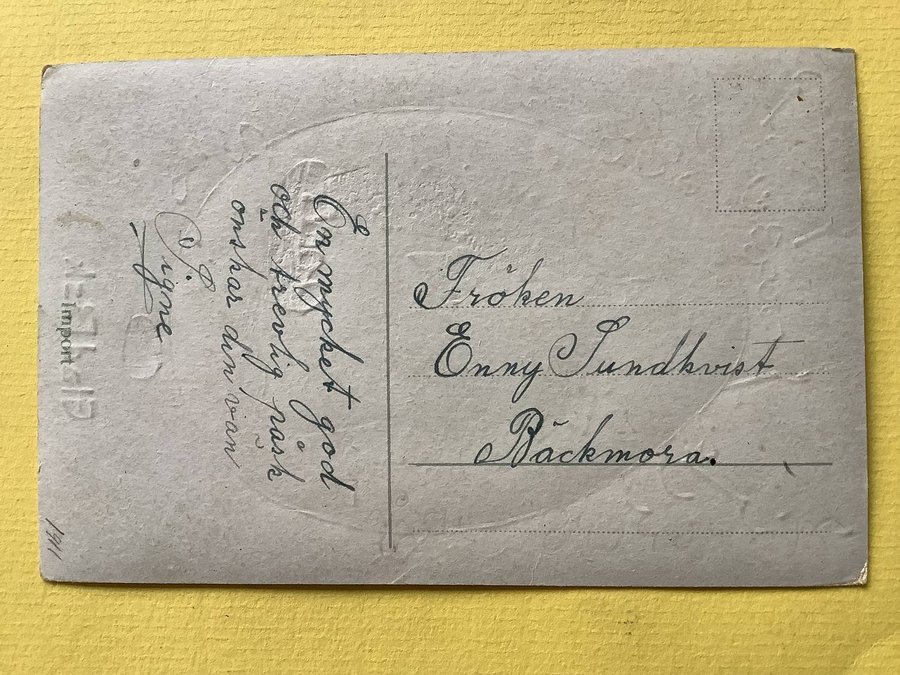 En mycket god
och trevlig påsk
önskar din vän
Signe
Fröken
Enny Sundkvist
Bäckmora.
Import
1911